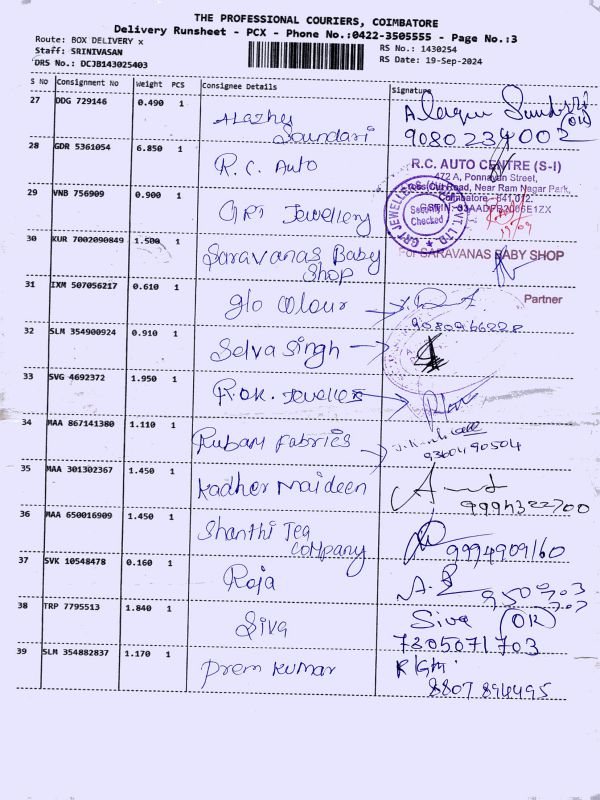 THE PROFESSIONAL COURIERS, COIMBATORE
Delivery Runsheet - PCX - Phone No.:0422-3505555 - Page No.:3
Route: BOX DELIVERY x
RS No.: 1430254
Staff: SRINIVASAN
RS Date: 19-Sep-2024
DRS No.: DCJB143025403
S No Consignment No Weight PCS Consignee Details Signature
27 DDG 729146 0.490 1 Alazhu Soundari
(OK)
9080234002
28 GDR 5361054 6.850 1 R.C. Auto
R.C. AUTO CENTRE (S-I)
472 A, Ponnayan Street,
Cross Cut Road, Near Ram Nagar Park,
Coimbatore - 641 012.
29 VNB 756909 0.900 1 GRT Jewellery
GRT JEWELLERS
Security
Checked
PVT. LTD
19/09
30 KUR 7002090849 1.500 1 Saravanas Baby Shop
For SARAVANAS BABY SHOP
Partner
31 IXM 507056217 0.610 1 glo colour
32 SLM 354900924 0.910 1 Selva Singh
33 SVG 4692372 1.950 1 R.OK. Jewellers
34 MAA 867141380 1.110 1 Rubam Fabrics
9360490504
35 MAA 301302367 1.450 1 Kadher Maideen
9994322700
36 MAA 650016909 1.450 1 Shanthi Tea Company
9994909160
37 SVK 10548478 0.160 1 Roja
38 TRP 7795513 1.840 1 Siva
Siva (OK)
7305071703
39 SLM 354882837 1.170 1 prem kumar
8807894495